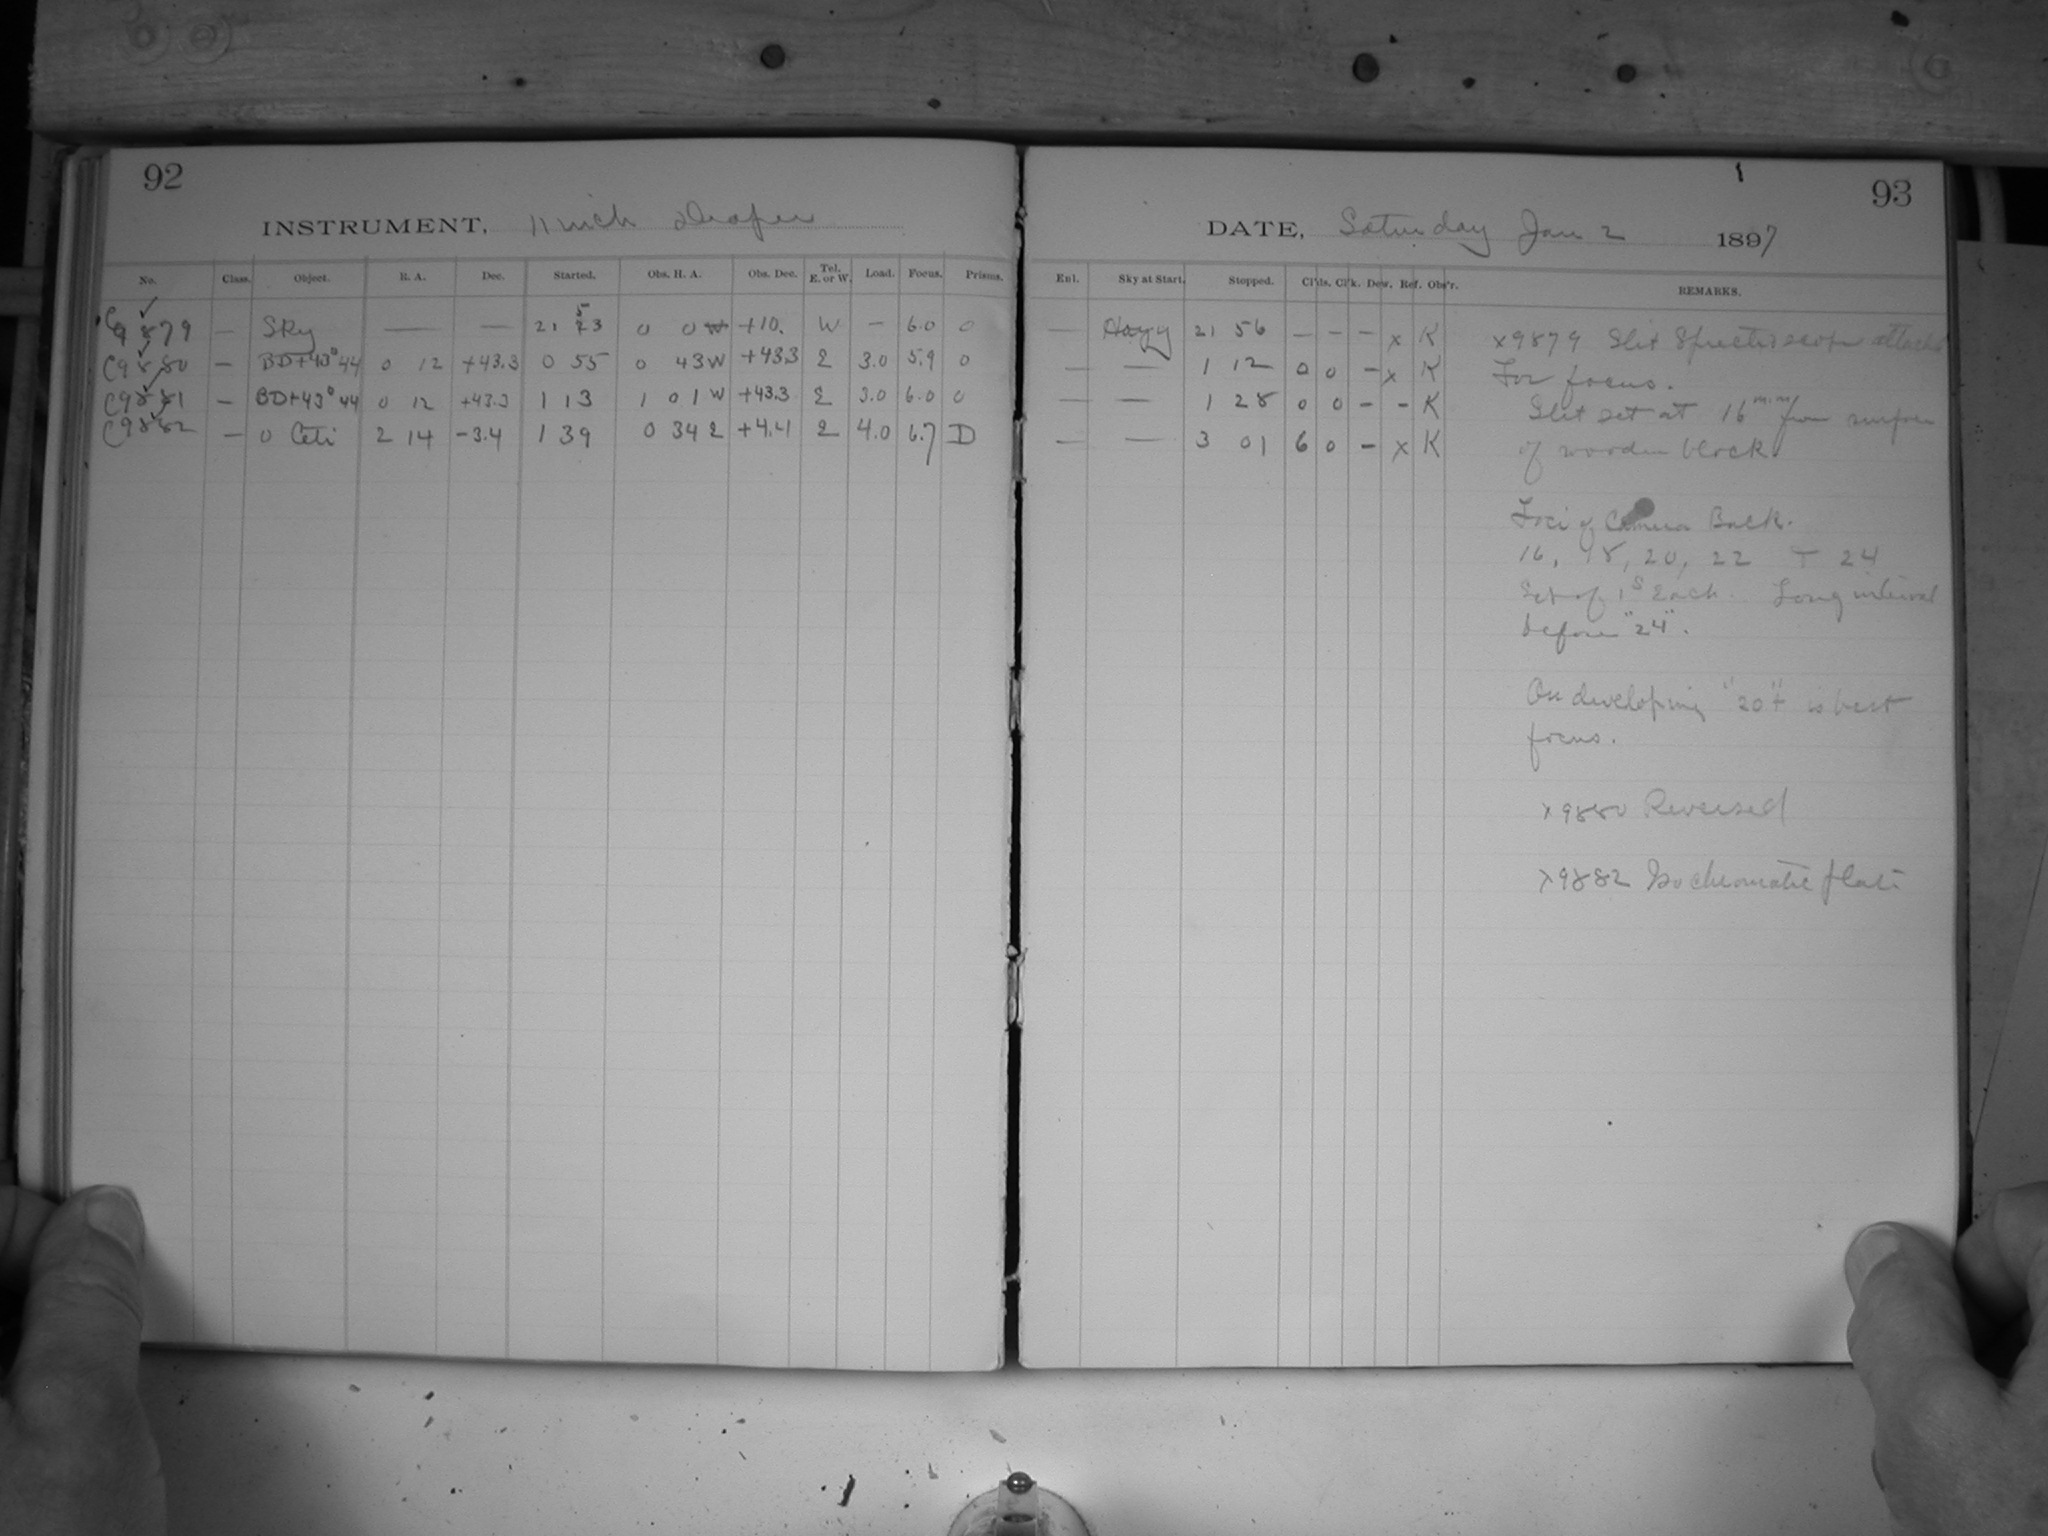 92
INSTRUMENT, 11 inch Draper
No. Class. Object. R. A. Dec. Started. Obs. H. A. Obs. Dec. Tel. E. or W. Load. Focus. Prisms.
C9879 — Sky — — 21 53 0 0 W +10. W — 6.0 0
C9880 — BD+43°44 0 12 +43.3 0 55 0 43 W +43.3 E 3.0 5.9 0
C9881 — BD+43°44 0 12 +43.3 1 13 1 01 W +43.3 E 3.0 6.0 0
C9882 — o Ceti 2 14 -3.4 1 39 0 34 E +4.4 E 4.0 6.7 D
93
DATE, Saturday Jan 2 1897
Enl. Sky at Start. Stopped. Cl'ds. Cl'k. Dew. Ref. Obs'r. REMARKS.
— Hazy 21 56 — — — x K
— — 1 12 0 0 — x K
— — 1 28 0 0 - - K
— — 3 01 6 0 — x K
x9879 Slit Spectroscope attached
For focus.
Slit set at 16 m.m. from surface
of wooden block.
Foci of Camera Back.
16, 18, 20, 22 + 24
Set of 1s Each. Long interval
before "24".
On developing "20"+ is best
focus.
x9880 Reversed
x9882 Isochromatic plate